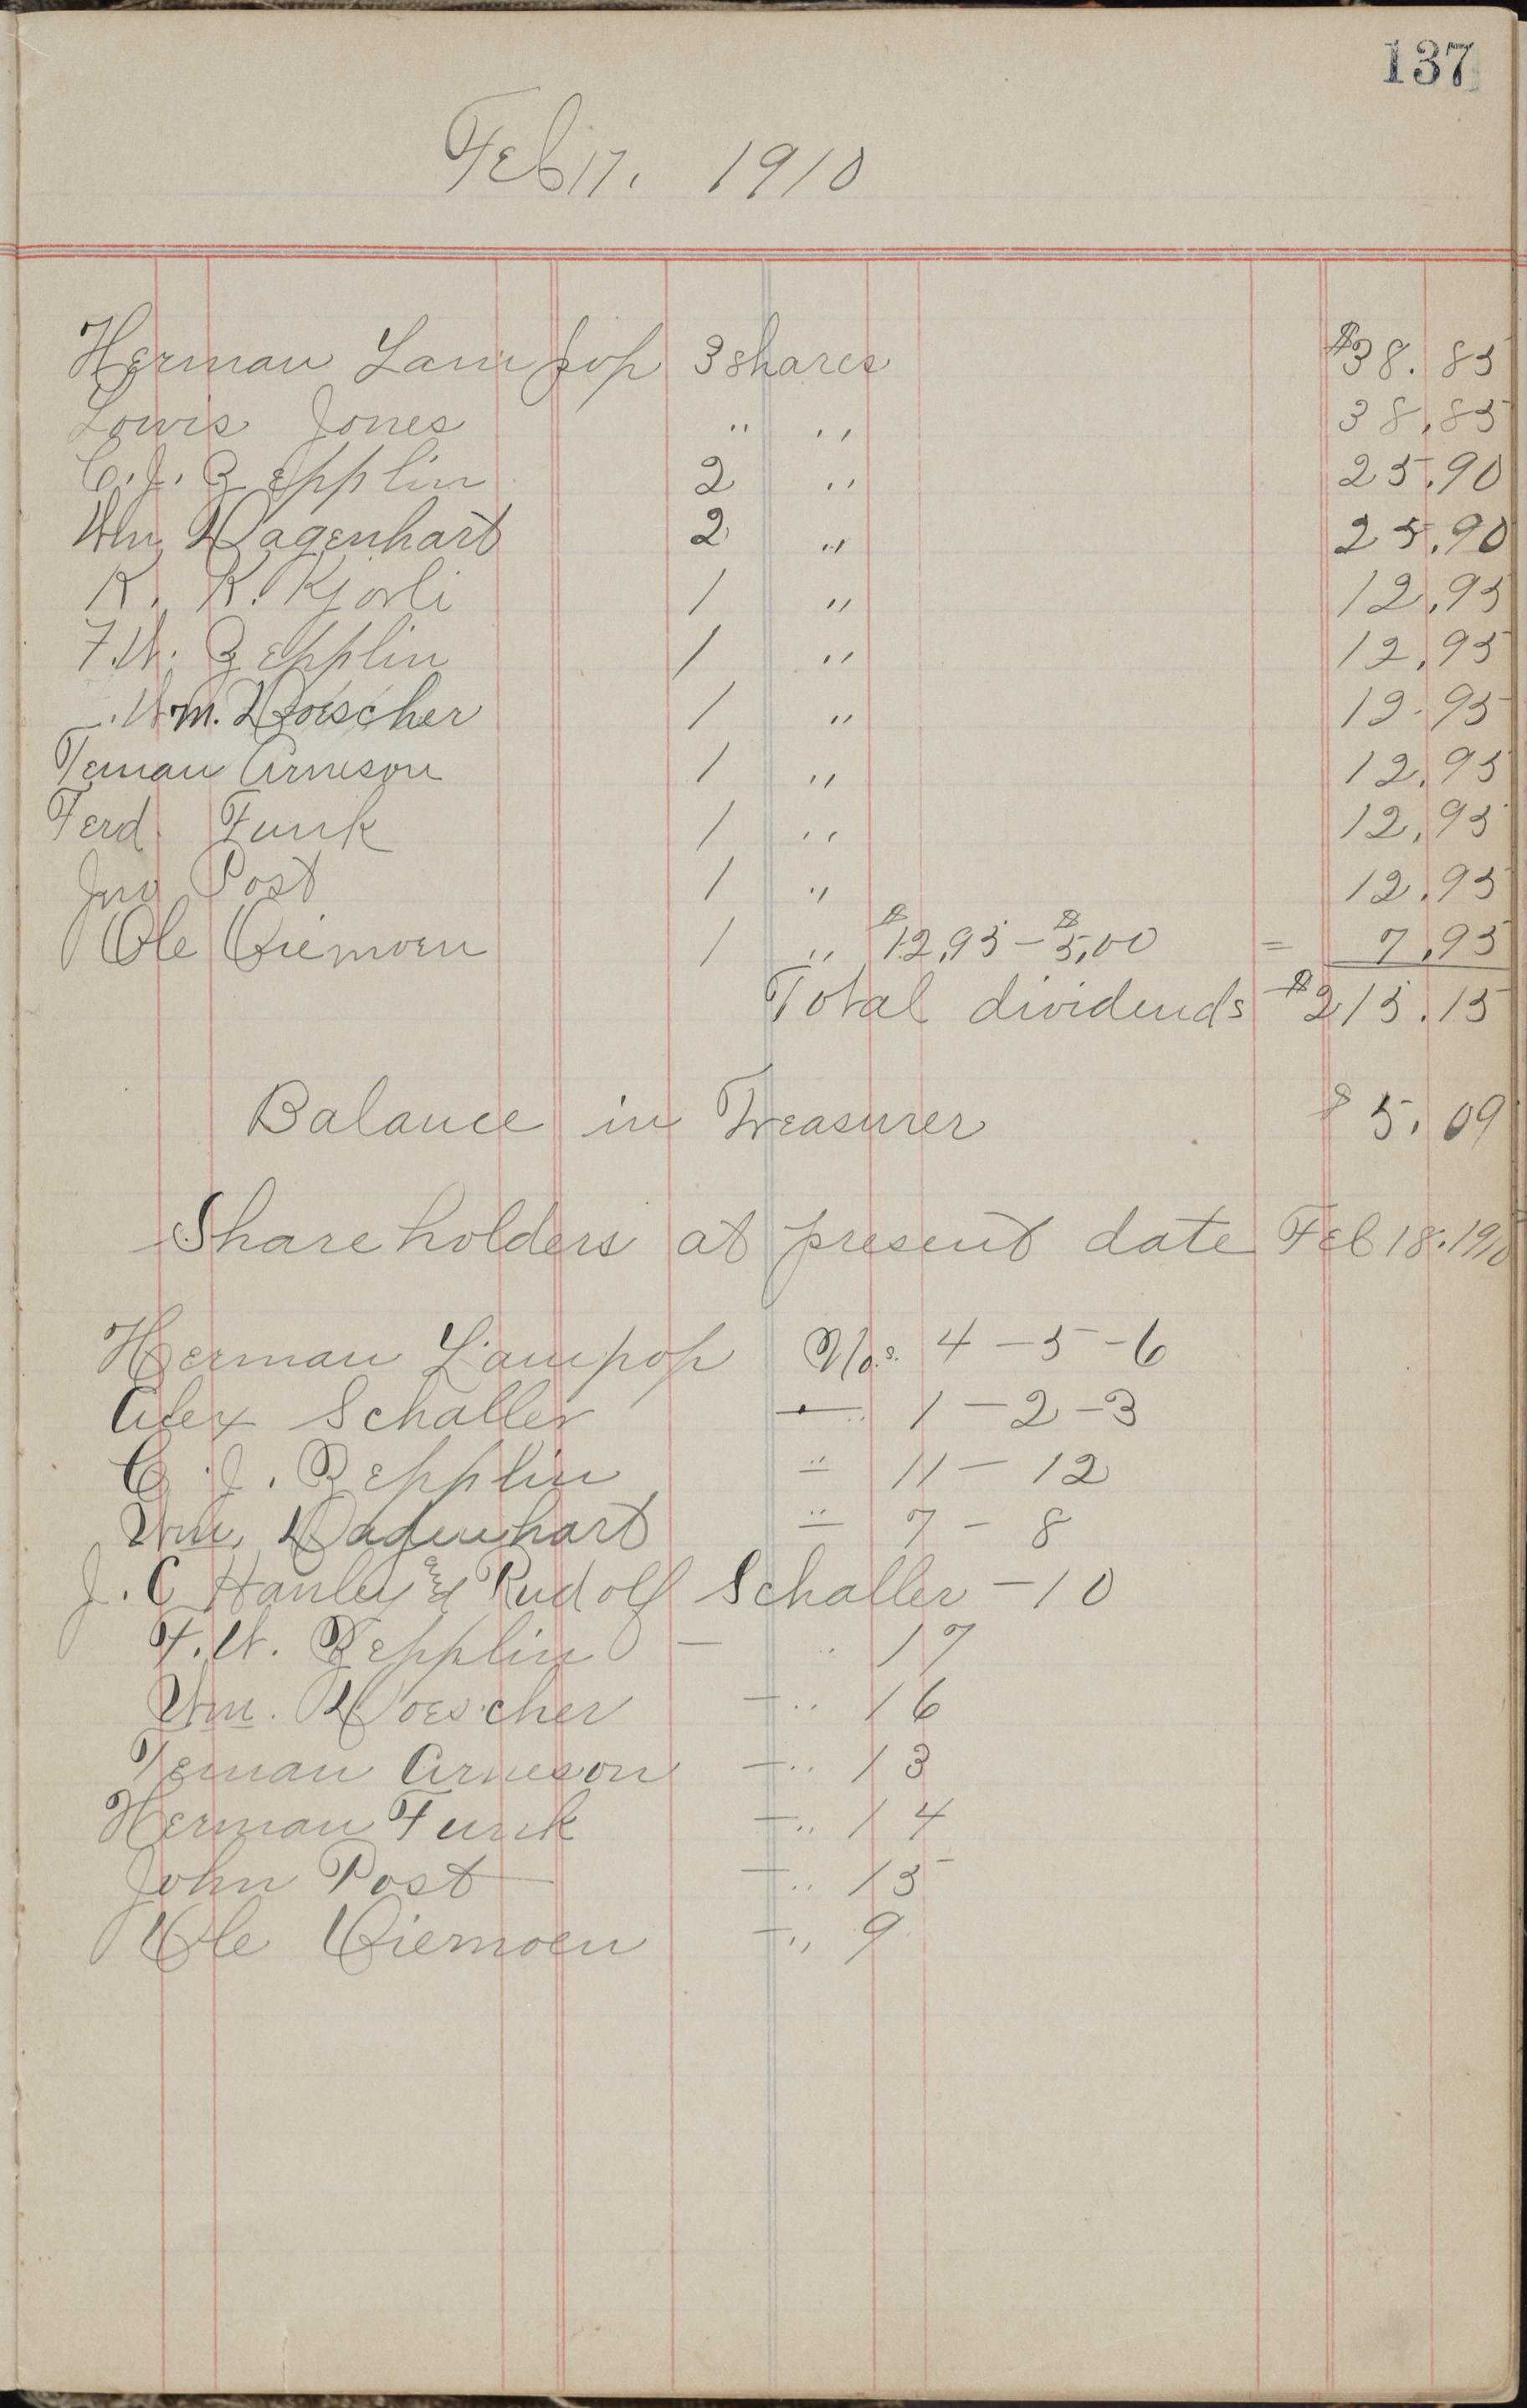 137
Feb 17. 1910
Herman Lampop 3 shares $38.85
Lowis Jones " " 38.85
C. J. Zepplin 2 " 25.90
Wm Wagenhart 2 " 25.90
K. K. Kjorli 1 " 12.95
F. W. Zepplin 1 " 12.95
Wm. Woescher 1 " 12.95
Teman Arneson 1 " 12.95
Ferd Funk 1 " 12.95
Jno Post 1 " 12.95
Ole Viemoen 1 " $12.95 - $5.00 = 7.95
Total dividends $215.15
Balance in Treasurer $5.09
Share holders at present date Feb 18. 1910
Herman Lampop Nos. 4 - 5 - 6
Alex Schaller — " 1 - 2 - 3
C. J. Zepplin — " 11 - 12
Wm. Wagenhart — " 7 - 8
J. C Hanley & Rudolf Schaller - 10
F. W. Zepplin — " 17
Wm. Woescher — " 16
Teman Arneson — " 13
Herman Funk — " 14
John Post — " 15
Ole Viemoen — " 9